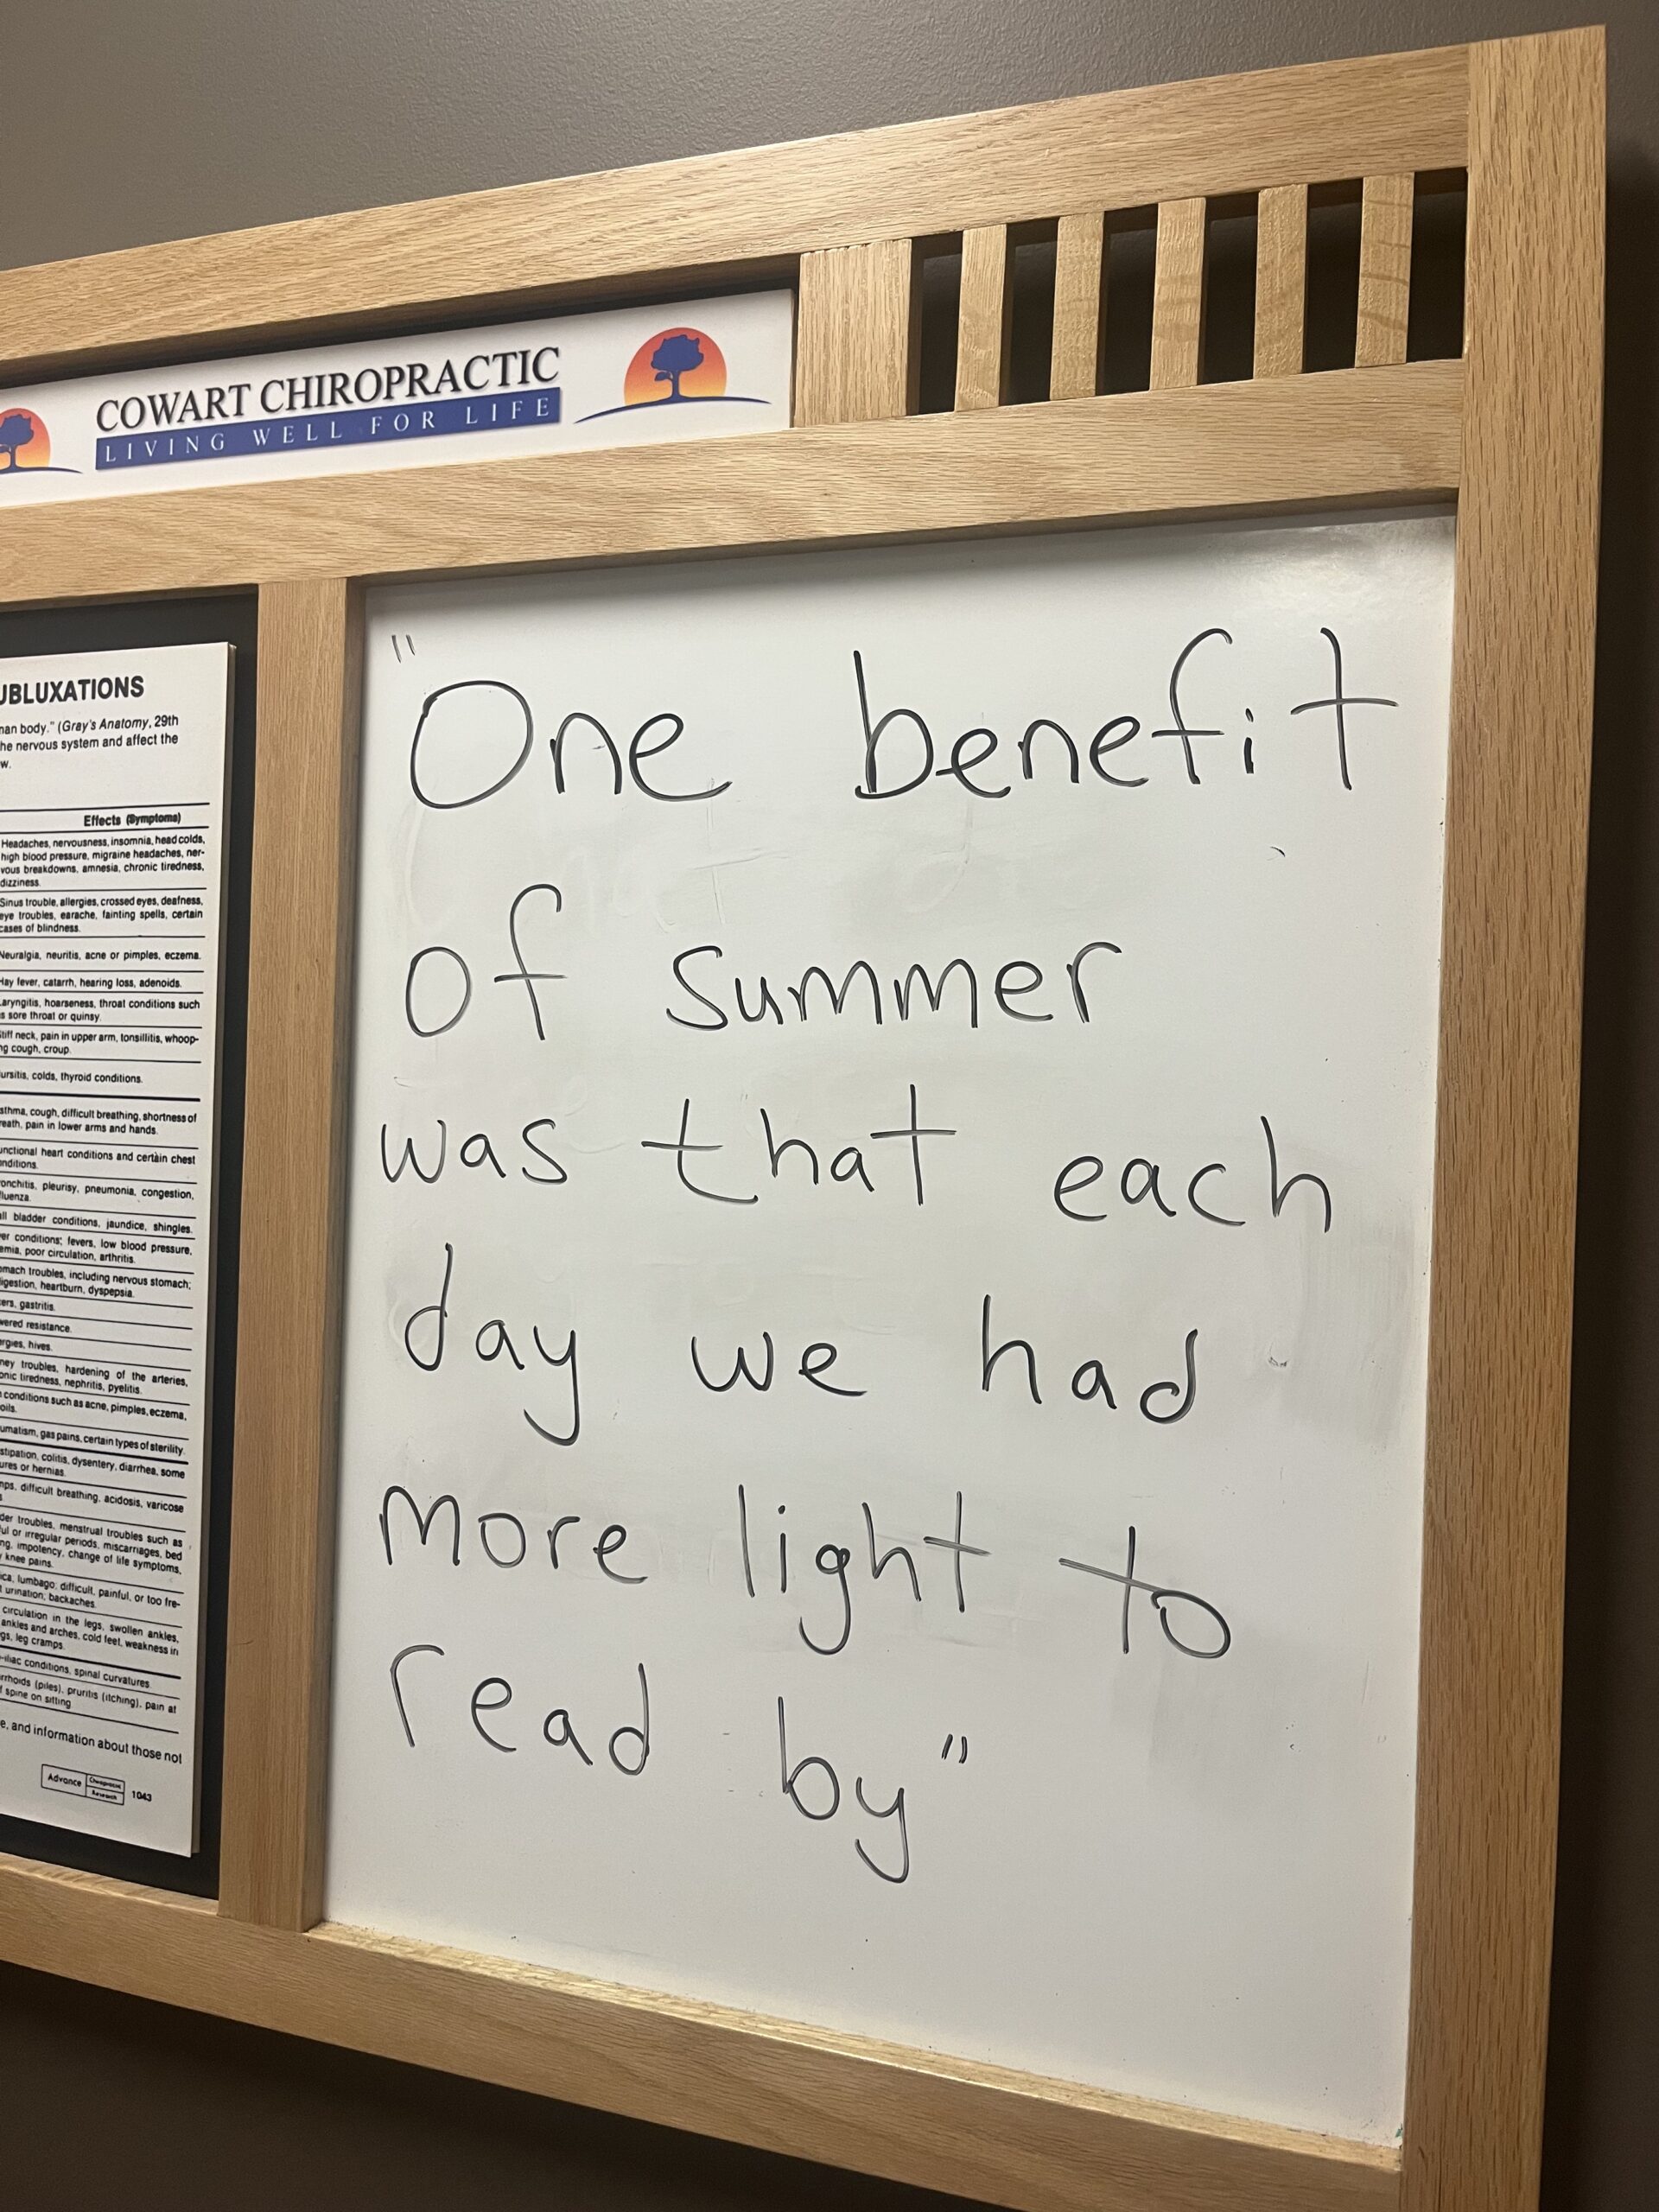 COWART CHIROPRACTIC
LIVING WELL FOR LIFE
"One benefit
of summer
was that each
day we had
more light to
read by"
UBLUXATIONS
man body." (Gray's Anatomy, 29th
he nervous system and affect the
w.
Effects (Symptoms)
Headaches, nervousness, insomnia, head colds,
high blood pressure, migraine headaches, ner-
vous breakdowns, amnesia, chronic tiredness,
dizziness.
Sinus trouble, allergies, crossed eyes, deafness,
eye troubles, earache, fainting spells, certain
cases of blindness.
Neuralgia, neuritis, acne or pimples, eczema.
Hay fever, catarrh, hearing loss, adenoids.
Laryngitis, hoarseness, throat conditions such
s sore throat or quinsy.
Stiff neck, pain in upper arm, tonsillitis, whoop-
ng cough, croup.
ursitis, colds, thyroid conditions.
sthma, cough, difficult breathing, shortness of
reath, pain in lower arms and hands.
unctional heart conditions and certain chest
nditions.
onchitis, pleurisy, pneumonia, congestion,
fluenza.
all bladder conditions, jaundice, shingles.
ver conditions; fevers, low blood pressure,
emia, poor circulation, arthritis.
omach troubles, including nervous stomach;
igestion, heartburn, dyspepsia.
ers, gastritis.
wered resistance.
ergies, hives.
ney troubles, hardening of the arteries,
onic tiredness, nephritis, pyelitis.
conditions such as acne, pimples, eczema,
oils.
umatism, gas pains, certain types of sterility.
stipation, colitis, dysentery, diarrhea, some
ures or hernias.
mps, difficult breathing, acidosis, varicose
der troubles, menstrual troubles such as
ful or irregular periods, miscarriages, bed
ng, impotency, change of life symptoms,
knee pains.
ica, lumbago; difficult, painful, or too fre-
urination; backaches.
circulation in the legs, swollen ankles,
ankles and arches, cold feet, weakness in
gs, leg cramps.
-iliac conditions, spinal curvatures.
rrhoids (piles), pruritis (itching), pain at
f spine on sitting
e, and information about those not
Advance Chiropractic Research 1043